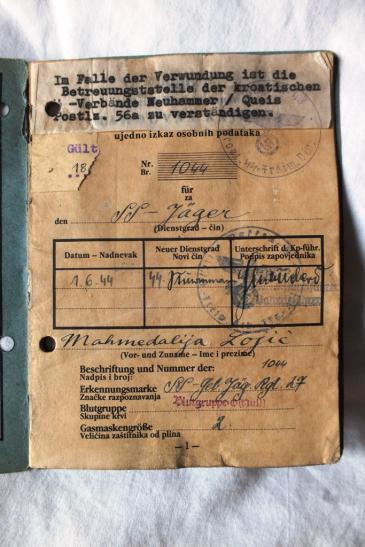 Im Falle der Verwundung ist die
Betreuungsstelle der kroatischen
-Verbände Neuhammer / Queis
Postlz. 56a zu verständigen.
ujedno izkaz osobnih podataka
Gült
18
Nr.
Br. 1044
für
za
den SS-Jäger
(Dienstgrad – čin)
Datum – Nadnevak
Neuer Dienstgrad
Novi čin
Unterschrift d. Kp-führ.
Podpis zapovjednika
1.6.44
Mahmedalija
(Vor- und Zuname – Ime i prezime)
Beschriftung und Nummer der: 1044
Nadpis i broj:
Erkennungsmarke SS Geb. Jäg. Rgt. 27
Značke razpoznavanja
Blutgruppe
Skupine krvi
Gasmaskengröße 2.
Veličina zaštitnika od plina
– 1 –